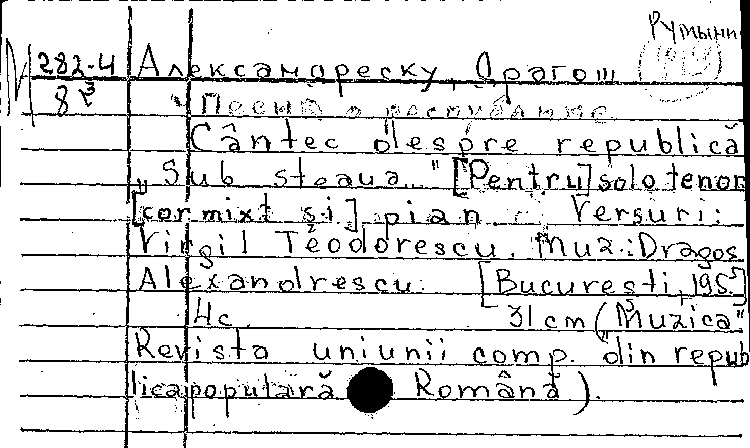 Румыни
М 282-4 Александреску, Драгош
8°
Песня о республике
Cântec despre republică
„Sub steaua..." [Pentru] solo tenor
[cor mixt și] pian Versuri:
Virgil Teodorescu. Muz.: Dragos
Alexandrescu. [Bucuresti, 195
4c. 31 cm (Muzica"
Revista uniunii comp. din repub
lica populară Română).